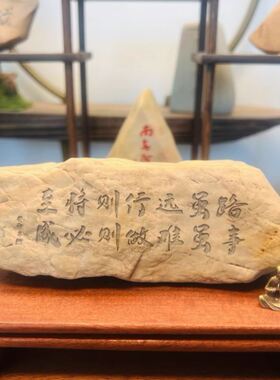 路虽远行则将至
事虽难做则必成
南